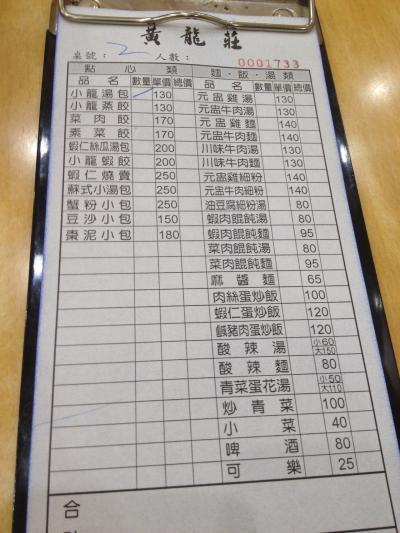 黃龍莊
桌號：2 人數：
0001733
點心類 麵・飯・湯類
品名 數量 單價 總價 品名 數量 單價 總價
小龍湯包 130 元盅雞湯 130
小龍蒸餃 130 元盅牛肉湯 130
菜肉餃 170 元盅雞麵 140
素菜餃 170 元盅牛肉麵 140
蝦仁絲瓜湯包 200 川味牛肉湯 130
小龍蝦餃 200 川味牛肉麵 130
蝦仁燒賣 250 元盅雞細粉 140
蘇式小湯包 250 元盅牛肉細粉 140
蟹粉小包 250 油豆腐細粉湯 80
豆沙小包 150 蝦肉餛飩湯 80
棗泥小包 180 蝦肉餛飩麵 95
菜肉餛飩湯 80
菜肉餛飩麵 95
麻醬麵 65
肉絲蛋炒飯 100
蝦仁蛋炒飯 120
鹹豬肉蛋炒飯 120
酸辣湯 小60 大150
酸辣麵 80
青菜蛋花湯 小50 大110
炒青菜 100
小菜 40
啤酒 80
可樂 25
合